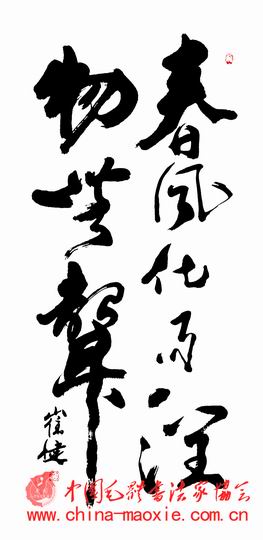 春风化雨润
物无声
崔健
中国毛体书法家协会
www.china-maoxie.com.cn